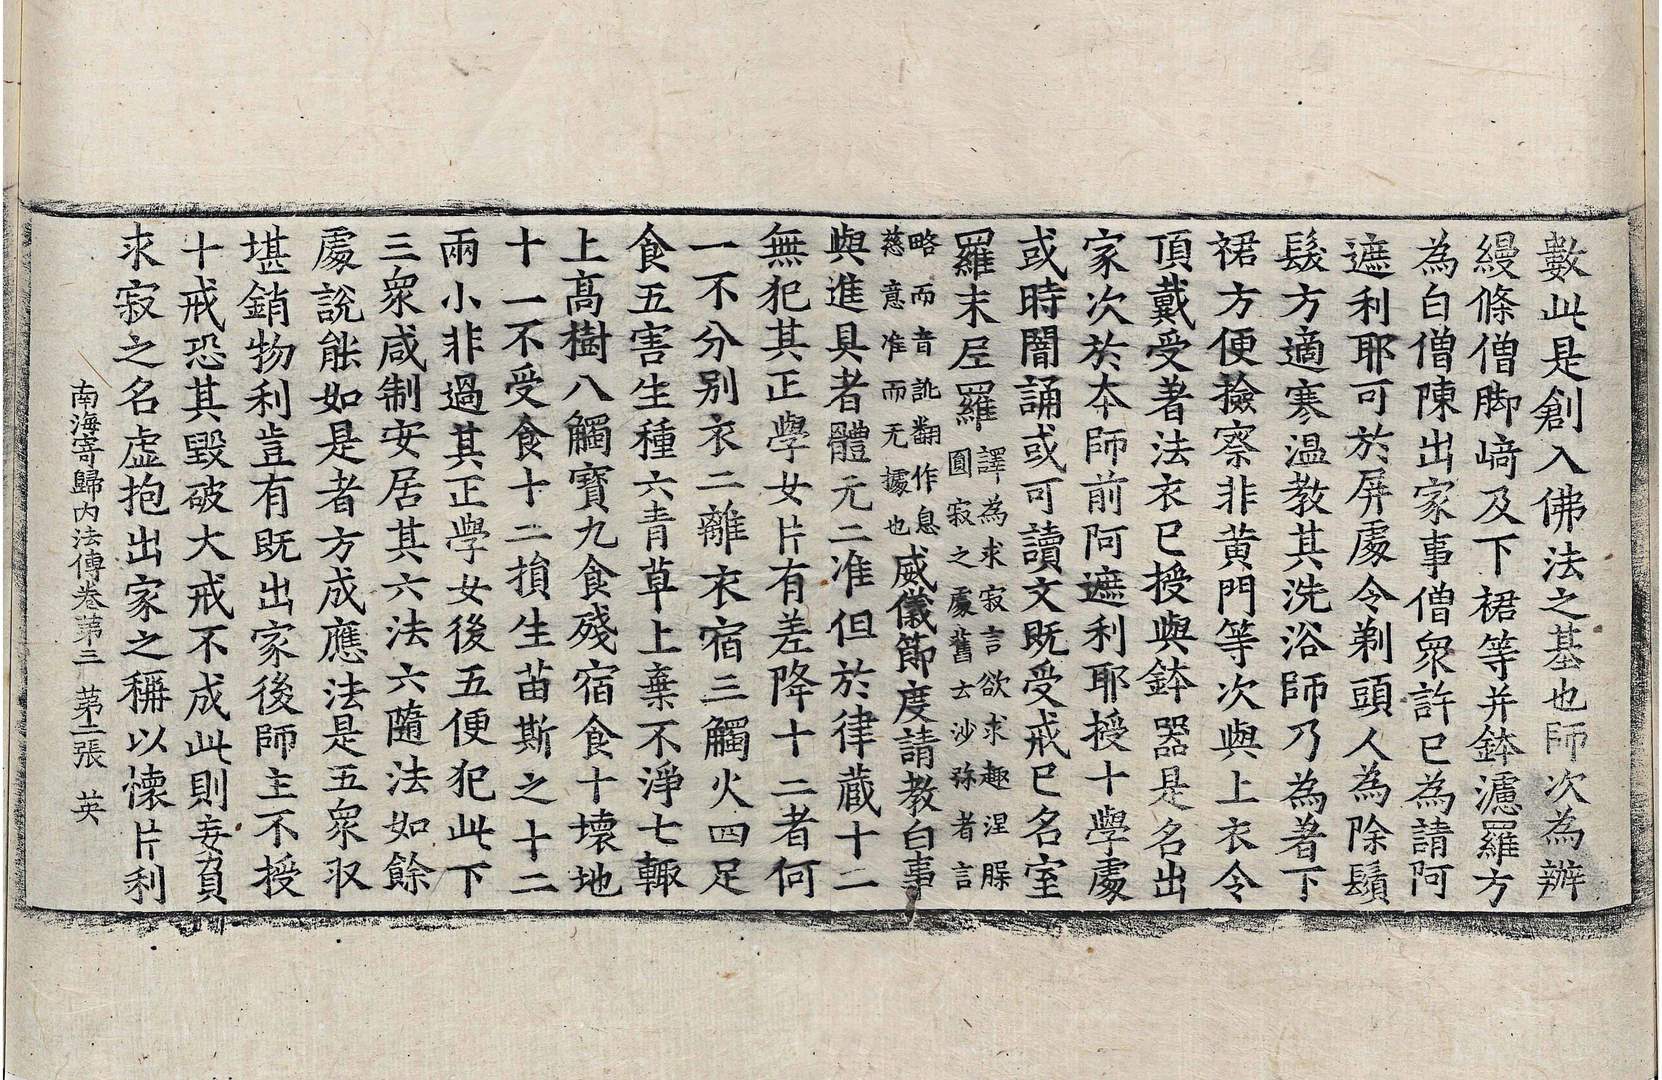 數此是創入佛法之基也師次為辦
縵條僧脚崎及下裙等并鉢濾羅方
為白僧陳出家事僧衆許已為請阿
遮利耶可於屏處令剃頭人為除鬚
髮方適寒温教其洗浴師乃為著下
裙方便撿察非黄門等次與上衣令
頂戴受著法衣已授與鉢器是名出
家次於本師前阿遮利耶授十學處
或時闇誦或可讀文既受戒已名室
羅末尼羅譯為求寂言欲求趣涅槃圓寂之處舊云沙弥者言
略而音訛翻作息慈意准而无據也威儀節度請教白事
與進具者體无二准但於律藏十二
無犯其正學女片有差降十二者何
一不分别衣二離衣宿三觸火四足
食五害生種六青草上棄不淨七輙
上高樹八觸寶九食殘宿食十壞地
十一不受食十二損生苗斯之十二
兩小非過其正學女後五便犯此下
三衆咸制安居其六法六隨法如餘
處說能如是者方成應法是五衆収
堪銷物利豈有既出家後師主不授
十戒恐其毀破大戒不成此則妄負
求寂之名虚抱出家之稱以懷片利
南海寄歸内法傳卷第三 第二張 英